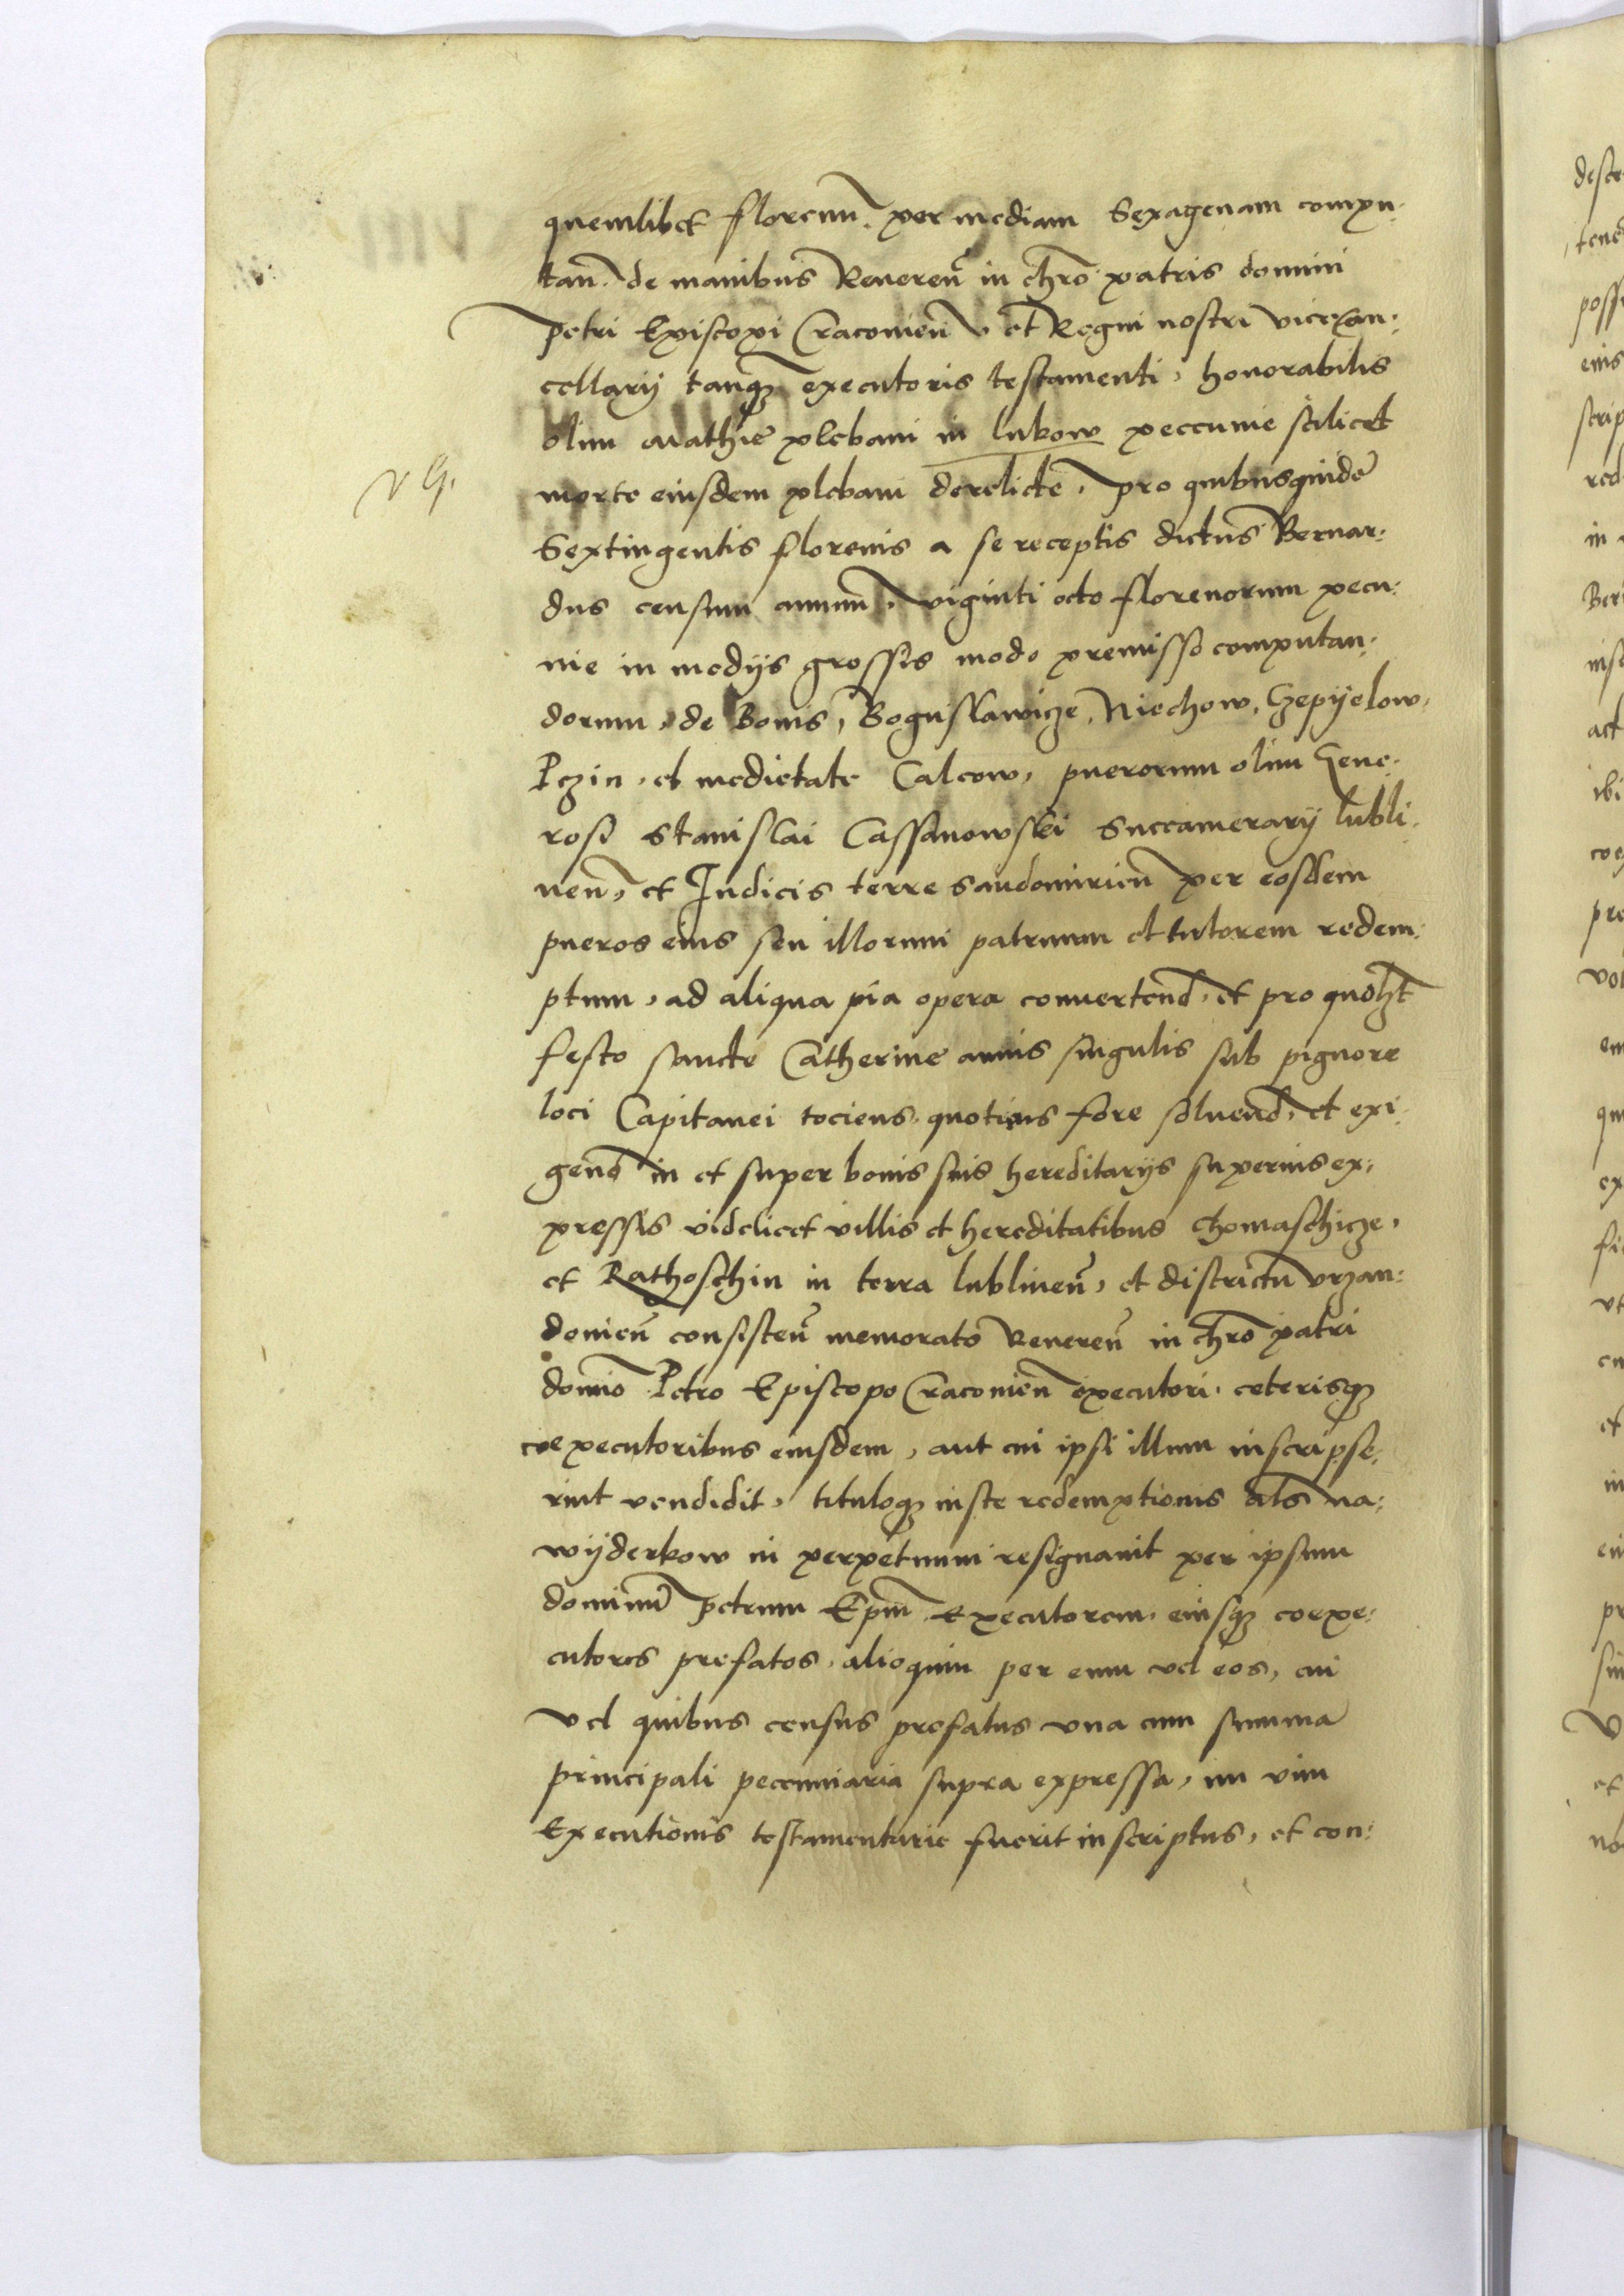 quemlibet florenu͂. per mediam Sexagenam compu:
tan͂. de manibus Reueren͂ in chr͂o patris domini
Petri Episcopi Cracouien͂ et Regni nostri vicecan:
cellarij tanq͂ꝫ executoris testamenti, honorabilis
olim Mathie plebani in lukow peccunie scilicet
morte eiusdem plebani derelicte. Pro quibusquide͂
Sextingentis florenis a se receptis dictus Bernar:
dus censum annuu͂, viginti octo florenorum pecu:
nie in medijs grossis modo premisso computan:
dorum, de Bonis, Boguslawicze, Niechow, Czepijelow,
Pczin, et medietate Calcow, puerorum olim Gene:
rosi Stanislai Cassanowski Succamerarij lubli:
nen͂, et Iudicis terre Sandomirien͂ per eosdem
pueros eius seu illorum patruum et tutorem redem:
ptum, ad aliqua pia opera conuertend͂, et pro quolꝫt
festo sancte Catherine annis singulis sub pignore
loci Capitanei tociens, quotiens fore soluend͂, et exi:
gend͂ in et super bonis suis hereditarijs superius ex:
pressis videlicet villis et hereditatibus Thomaschicze,
et Rathoschin in terra lublinen͂, et districtu vrzan:
donien͂ consisten͂ memorato Reueren͂ in chr͂o patri
domi͂o Petro Episcopo Cracouien͂ executori, ceterisqꝫ
coexecutoribus eiusdem, aut cui ipsi illum inscripse:
rint vendidit, tituloqꝫ iuste redemptionis al͂s na:
wijderkow in perpetuum resignauit per ipsum
dominu͂ Petrum Ep͂m Executorem, eiusqꝫ coexe:
cutores prefatos, alioquin per eum vel eos, cui
vel quibus census prefatus vna cum summa
principali peccuniaria supra expressa, in vim
Executionis testamentarie fuerit inscriptus, et con: